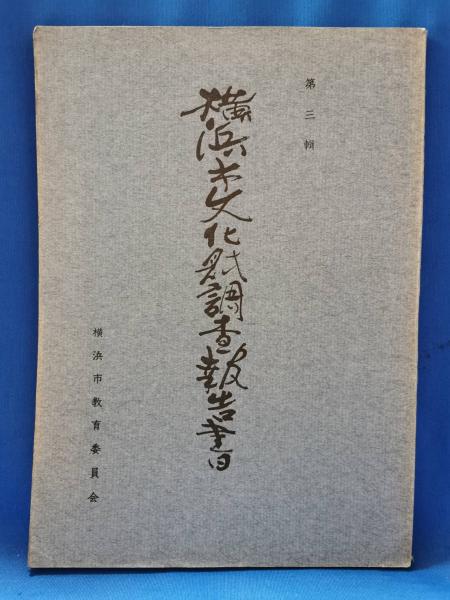 第三輯
横浜市文化財調査報告書
横浜市教育委員会